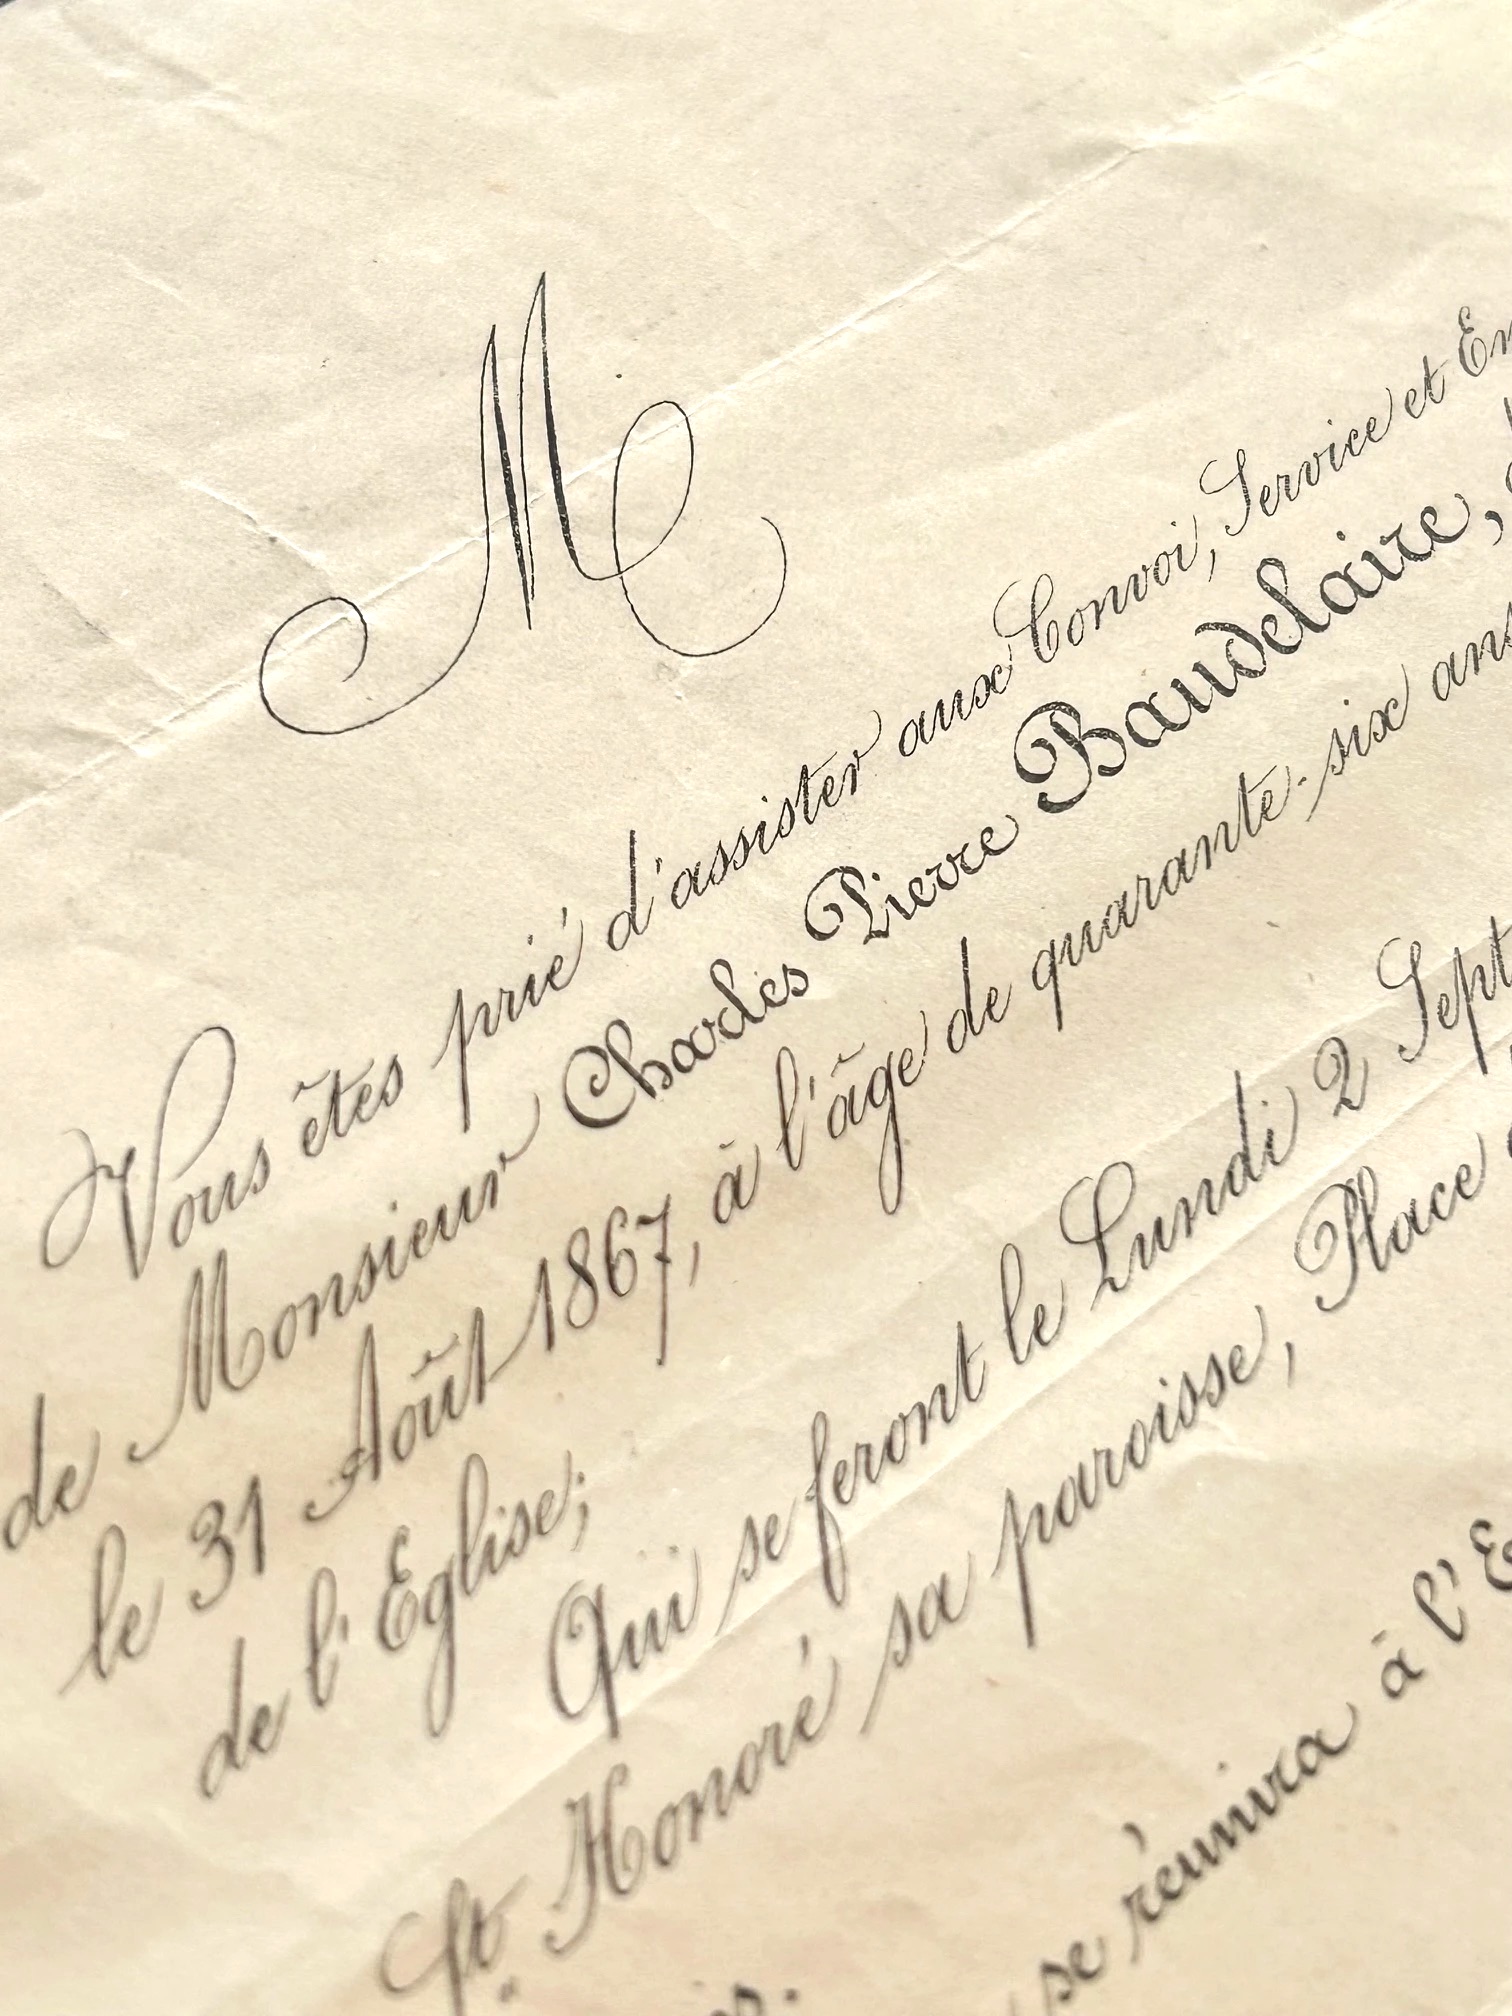 M
Vous êtes prié d'assister aux Convoi, Service et
de Monsieur Charles Pierre Baudelaire,
le 31 Août 1867, à l'âge de quarante-six ans
de l'Eglise;
Qui se feront le Lundi 2 Sept
St. Honoré sa paroisse, Place
se réunira à l'